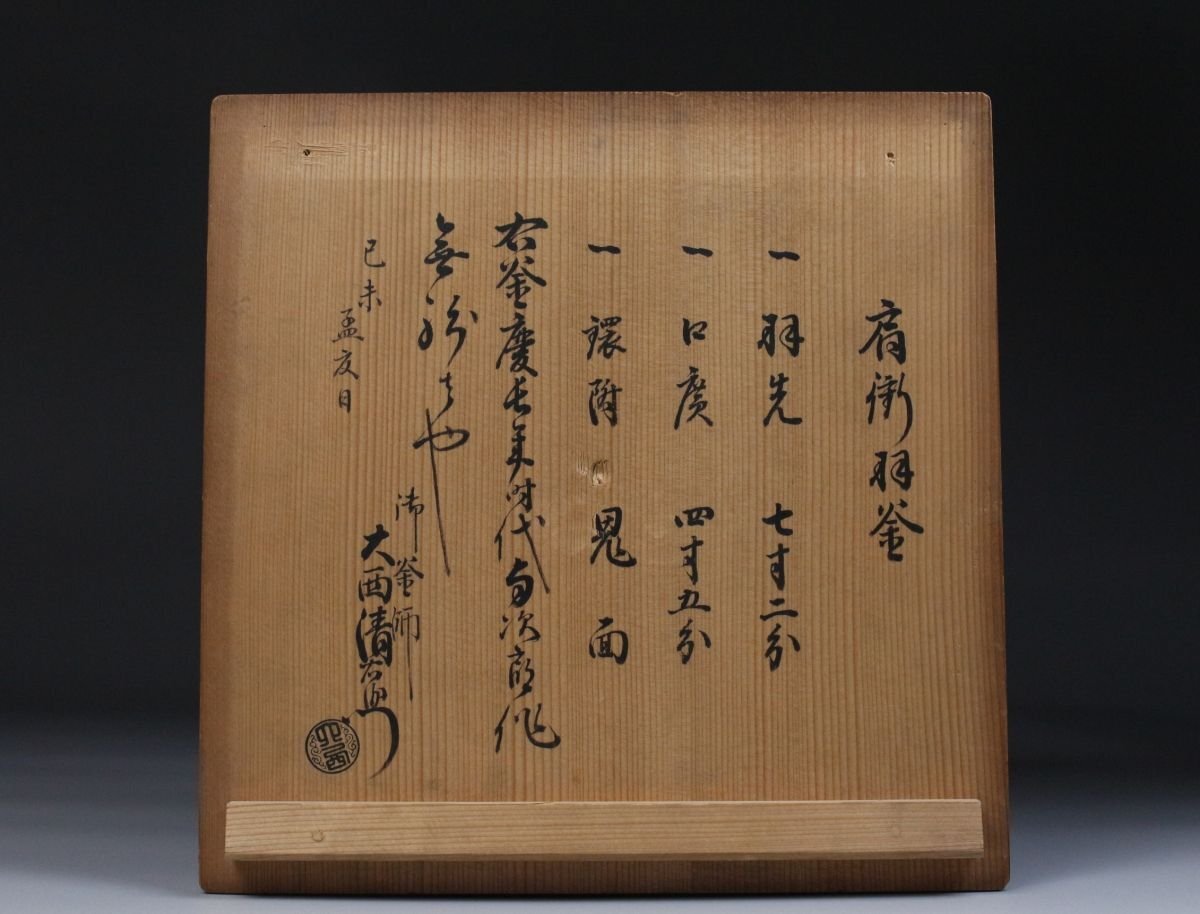 肩衝羽釜
一 羽先 七寸二分
一 口廣 四寸五分
一 環附 鬼面
右釜慶長年時代与次郎作
無紛者也
己未 孟夏日
御釜師
大西清右衛門
大西